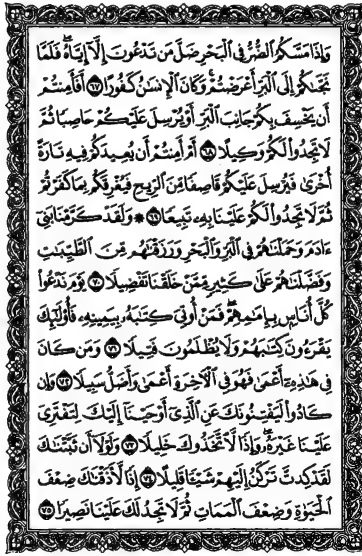 وَإِذَا مَسَّكُمُ الضُّرُّ فِي الْبَحْرِ ضَلَّ مَن تَدْعُونَ إِلَّا إِيَّاهُ فَلَمَّا
نَجَّىٰكُمْ إِلَى الْبَرِّ أَعْرَضْتُمْ وَكَانَ الْإِنسَٰنُ كَفُورًا ٦٧ أَفَأَمِنتُمْ
أَن يَخْسِفَ بِكُمْ جَانِبَ الْبَرِّ أَوْ يُرْسِلَ عَلَيْكُمْ حَاصِبًا ثُمَّ
لَا تَجِدُوا لَكُمْ وَكِيلًا ٦٨ أَمْ أَمِنتُمْ أَن يُعِيدَكُمْ فِيهِ تَارَةً
أُخْرَىٰ فَيُرْسِلَ عَلَيْكُمْ قَاصِفًا مِّنَ الرِّيحِ فَيُغْرِقَكُم بِمَا كَفَرْتُمْ
ثُمَّ لَا تَجِدُوا لَكُمْ عَلَيْنَا بِهِ تَبِيعًا ٦٩ ۞ وَلَقَدْ كَرَّمْنَا بَنِي
ءَادَمَ وَحَمَلْنَٰهُمْ فِي الْبَرِّ وَالْبَحْرِ وَرَزَقْنَٰهُم مِّنَ الطَّيِّبَٰتِ
وَفَضَّلْنَٰهُمْ عَلَىٰ كَثِيرٍ مِّمَّنْ خَلَقْنَا تَفْضِيلًا ٧٠ يَوْمَ نَدْعُوا
كُلَّ أُنَاسٍ بِإِمَٰمِهِمْ فَمَنْ أُوتِيَ كِتَٰبَهُ بِيَمِينِهِ فَأُولَٰئِكَ
يَقْرَءُونَ كِتَٰبَهُمْ وَلَا يُظْلَمُونَ فَتِيلًا ٧١ وَمَن كَانَ
فِي هَٰذِهِ أَعْمَىٰ فَهُوَ فِي الْءَاخِرَةِ أَعْمَىٰ وَأَضَلُّ سَبِيلًا ٧٢ وَإِن
كَادُوا لَيَفْتِنُونَكَ عَنِ الَّذِي أَوْحَيْنَا إِلَيْكَ لِتَفْتَرِيَ
عَلَيْنَا غَيْرَهُ وَإِذًا لَّاتَّخَذُوكَ خَلِيلًا ٧٣ وَلَوْلَا أَن ثَبَّتْنَٰكَ
لَقَدْ كِدتَّ تَرْكَنُ إِلَيْهِمْ شَيْئًا قَلِيلًا ٧٤ إِذًا لَّأَذَقْنَٰكَ ضِعْفَ
الْحَيَوٰةِ وَضِعْفَ الْمَمَاتِ ثُمَّ لَا تَجِدُ لَكَ عَلَيْنَا نَصِيرًا ٧٥